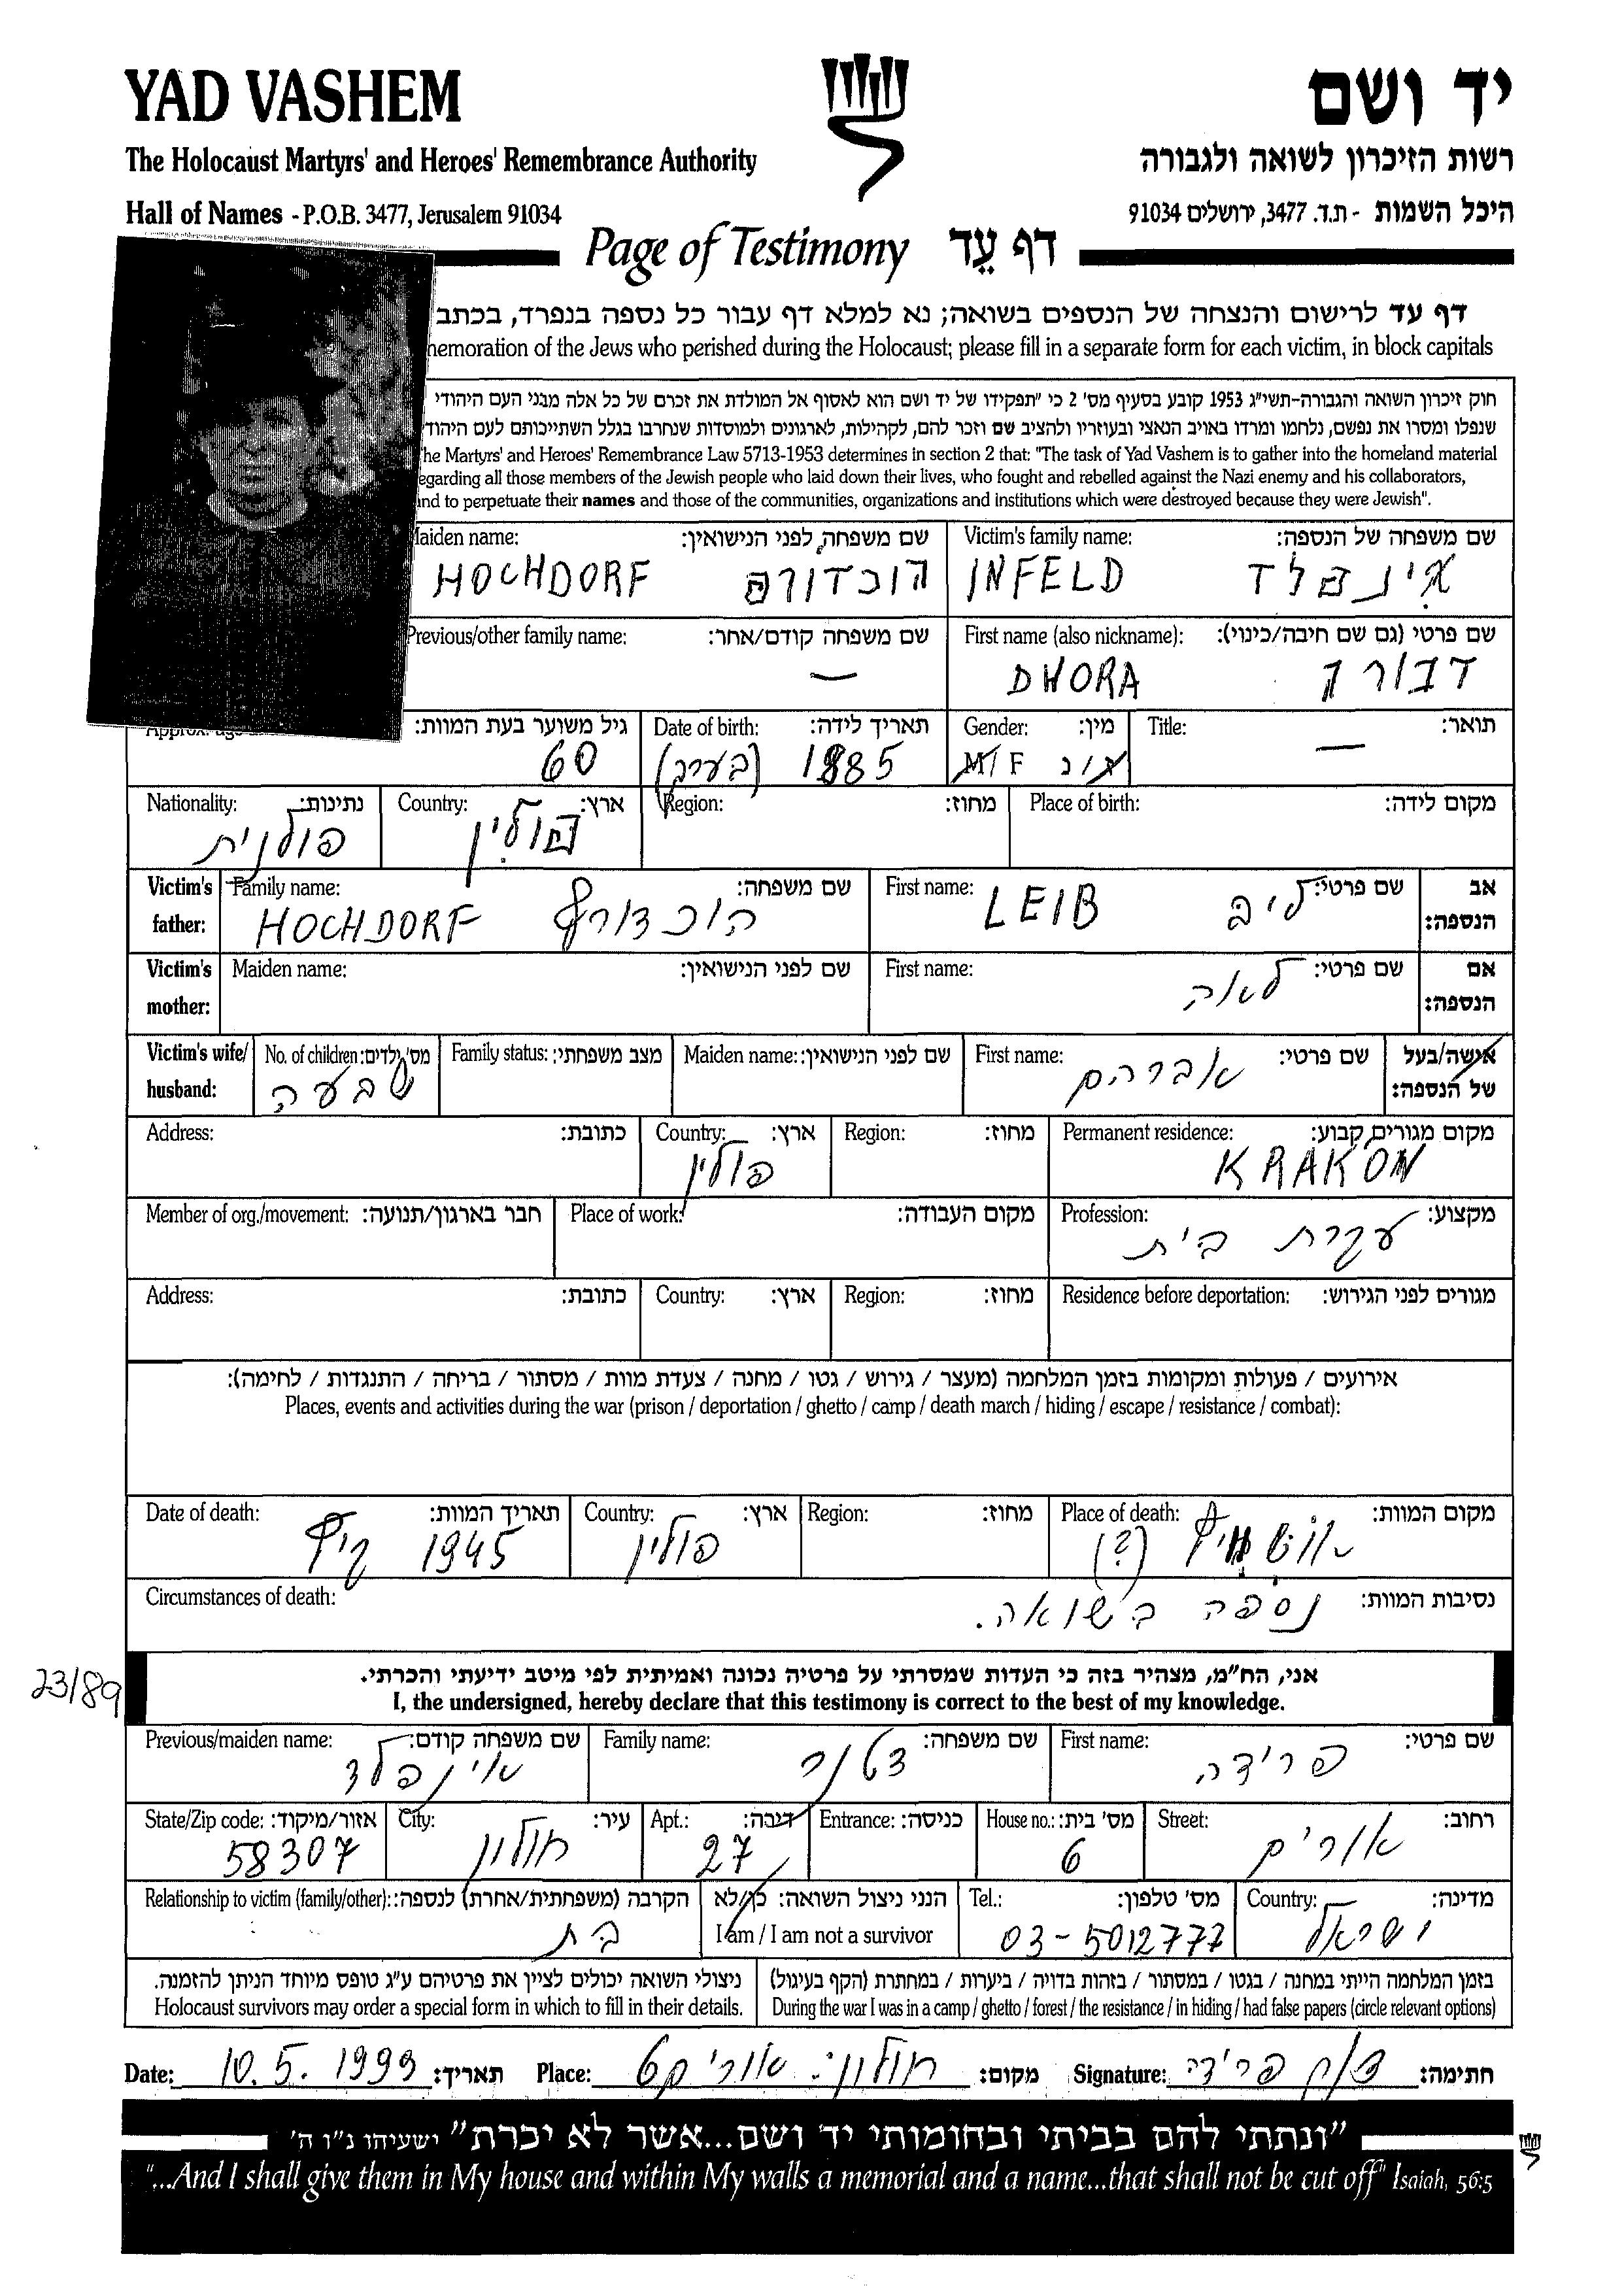 YAD VASHEM
יד ושם
The Holocaust Martyrs' and Heroes' Remembrance Authority
רשות הזיכרון לשואה ולגבורה
Hall of Names - P.O.B. 3477, Jerusalem 91034
היכל השמות - ת.ד. 3477, ירושלים 91034
Page of Testimony דף עֵד
דף עד לרישום והנצחה של הנספים בשואה; נא למלא דף עבור כל נספה בנפרד, בכתב
memoration of the Jews who perished during the Holocaust; please fill in a separate form for each victim, in block capitals
חוק זיכרון השואה והגבורה-תשי"ג 1953 קובע בסעיף מס' 2 כי "תפקידו של יד ושם הוא לאסוף אל המולדת את זכרם של כל אלה מבני העם היהודי
שנפלו ומסרו את נפשם, נלחמו ומרדו באויב הנאצי ובעוזריו ולהציב שם וזכר להם, לקהילות, לארגונים ולמוסדות שנחרבו בגלל השתייכותם לעם היהוד
he Martyrs' and Heroes' Remembrance Law 5713-1953 determines in section 2 that: "The task of Yad Vashem is to gather into the homeland material
egarding all those members of the Jewish people who laid down their lives, who fought and rebelled against the Nazi enemy and his collaborators,
nd to perpetuate their names and those of the communities, organizations and institutions which were destroyed because they were Jewish".
Maiden name: שם משפחה לפני הנישואין: Victim's family name: שם משפחה של הנספה:
HOCHDORF הוכדורפ INFELD אינפלד
Previous/other family name: שם משפחה קודם/אחר: First name (also nickname): שם פרטי (גם שם חיבה/כינוי):
— DWORA דבורה
גיל משוער בעת המוות: Date of birth: תאריך לידה: Gender: מין: Title: תואר:
60 (בערך) 1885 M/F ז/נ —
Nationality: נתינות: Country: ארץ: Region: מחוז: Place of birth: מקום לידה:
פולנית פולין
Victim's father: Family name: שם משפחה: First name: שם פרטי: אב הנספה:
HOCHDORF הוכדורף LEIB ליב
Victim's mother: Maiden name: שם לפני הנישואין: First name: שם פרטי: אם הנספה:
לאה
Victim's wife/ husband: No. of children: מס' ילדים: Family status: מצב משפחתי: Maiden name: שם לפני הנישואין: First name: שם פרטי: אישה/בעל של הנספה:
שבעה אברהם
Address: כתובת: Country: ארץ: Region: מחוז: Permanent residence: מקום מגורים קבוע:
פולין KRAKOW
Member of org./movement: חבר בארגון/תנועה: Place of work: מקום העבודה: Profession: מקצוע:
עקרת בית
Address: כתובת: Country: ארץ: Region: מחוז: Residence before deportation: מגורים לפני הגירוש:
אירועים / פעולות ומקומות בזמן המלחמה (מעצר / גירוש / גטו / מחנה / צעדת מוות / מסתור / בריחה / התנגדות / לחימה):
Places, events and activities during the war (prison / deportation / ghetto / camp / death march / hiding / escape / resistance / combat):
Date of death: תאריך המוות: Country: ארץ: Region: מחוז: Place of death: מקום המוות:
קיץ 1945 פולין אושוויץ (?)
Circumstances of death: נסיבות המוות:
נספה בשואה.
אני, הח"מ, מצהיר בזה כי העדות שמסרתי על פרטיה נכונה ואמיתית לפי מיטב ידיעתי והכרתי.
23/89
I, the undersigned, hereby declare that this testimony is correct to the best of my knowledge.
Previous/maiden name: שם משפחה קודם: Family name: שם משפחה: First name: שם פרטי:
אינפלד פרידה
State/Zip code: אזור/מיקוד: City: עיר: Apt.: דירה: Entrance: כניסה: House no.: מס' בית: Street: רחוב:
58307 חולון 27 6 אורים
Relationship to victim (family/other): הקרבה (משפחתית/אחרת) לנספה: הנני ניצול השואה: כן/לא Tel.: מס' טלפון: Country: מדינה:
בת I am / I am not a survivor 03-5012777 ישראל
בזמן המלחמה הייתי במחנה / בגטו / במסתור / בזהות בדויה / ביערות / במחתרת (הקף בעיגול)
ניצולי השואה יכולים לציין את פרטיהם ע"ג טופס מיוחד הניתן להזמנה.
Holocaust survivors may order a special form in which to fill in their details. During the war I was in a camp / ghetto / forest / the resistance / in hiding / had false papers (circle relevant options)
Date: 10.5.1999 תאריך: Place: חולון מקום: Signature: פרידה חתימה:
"ונתתי להם בביתי ובחומותי יד ושם...אשר לא יכרת" ישעיהו נ"ו ה'
"...And I shall give them in My house and within My walls a memorial and a name...that shall not be cut off" Isaiah, 56:5